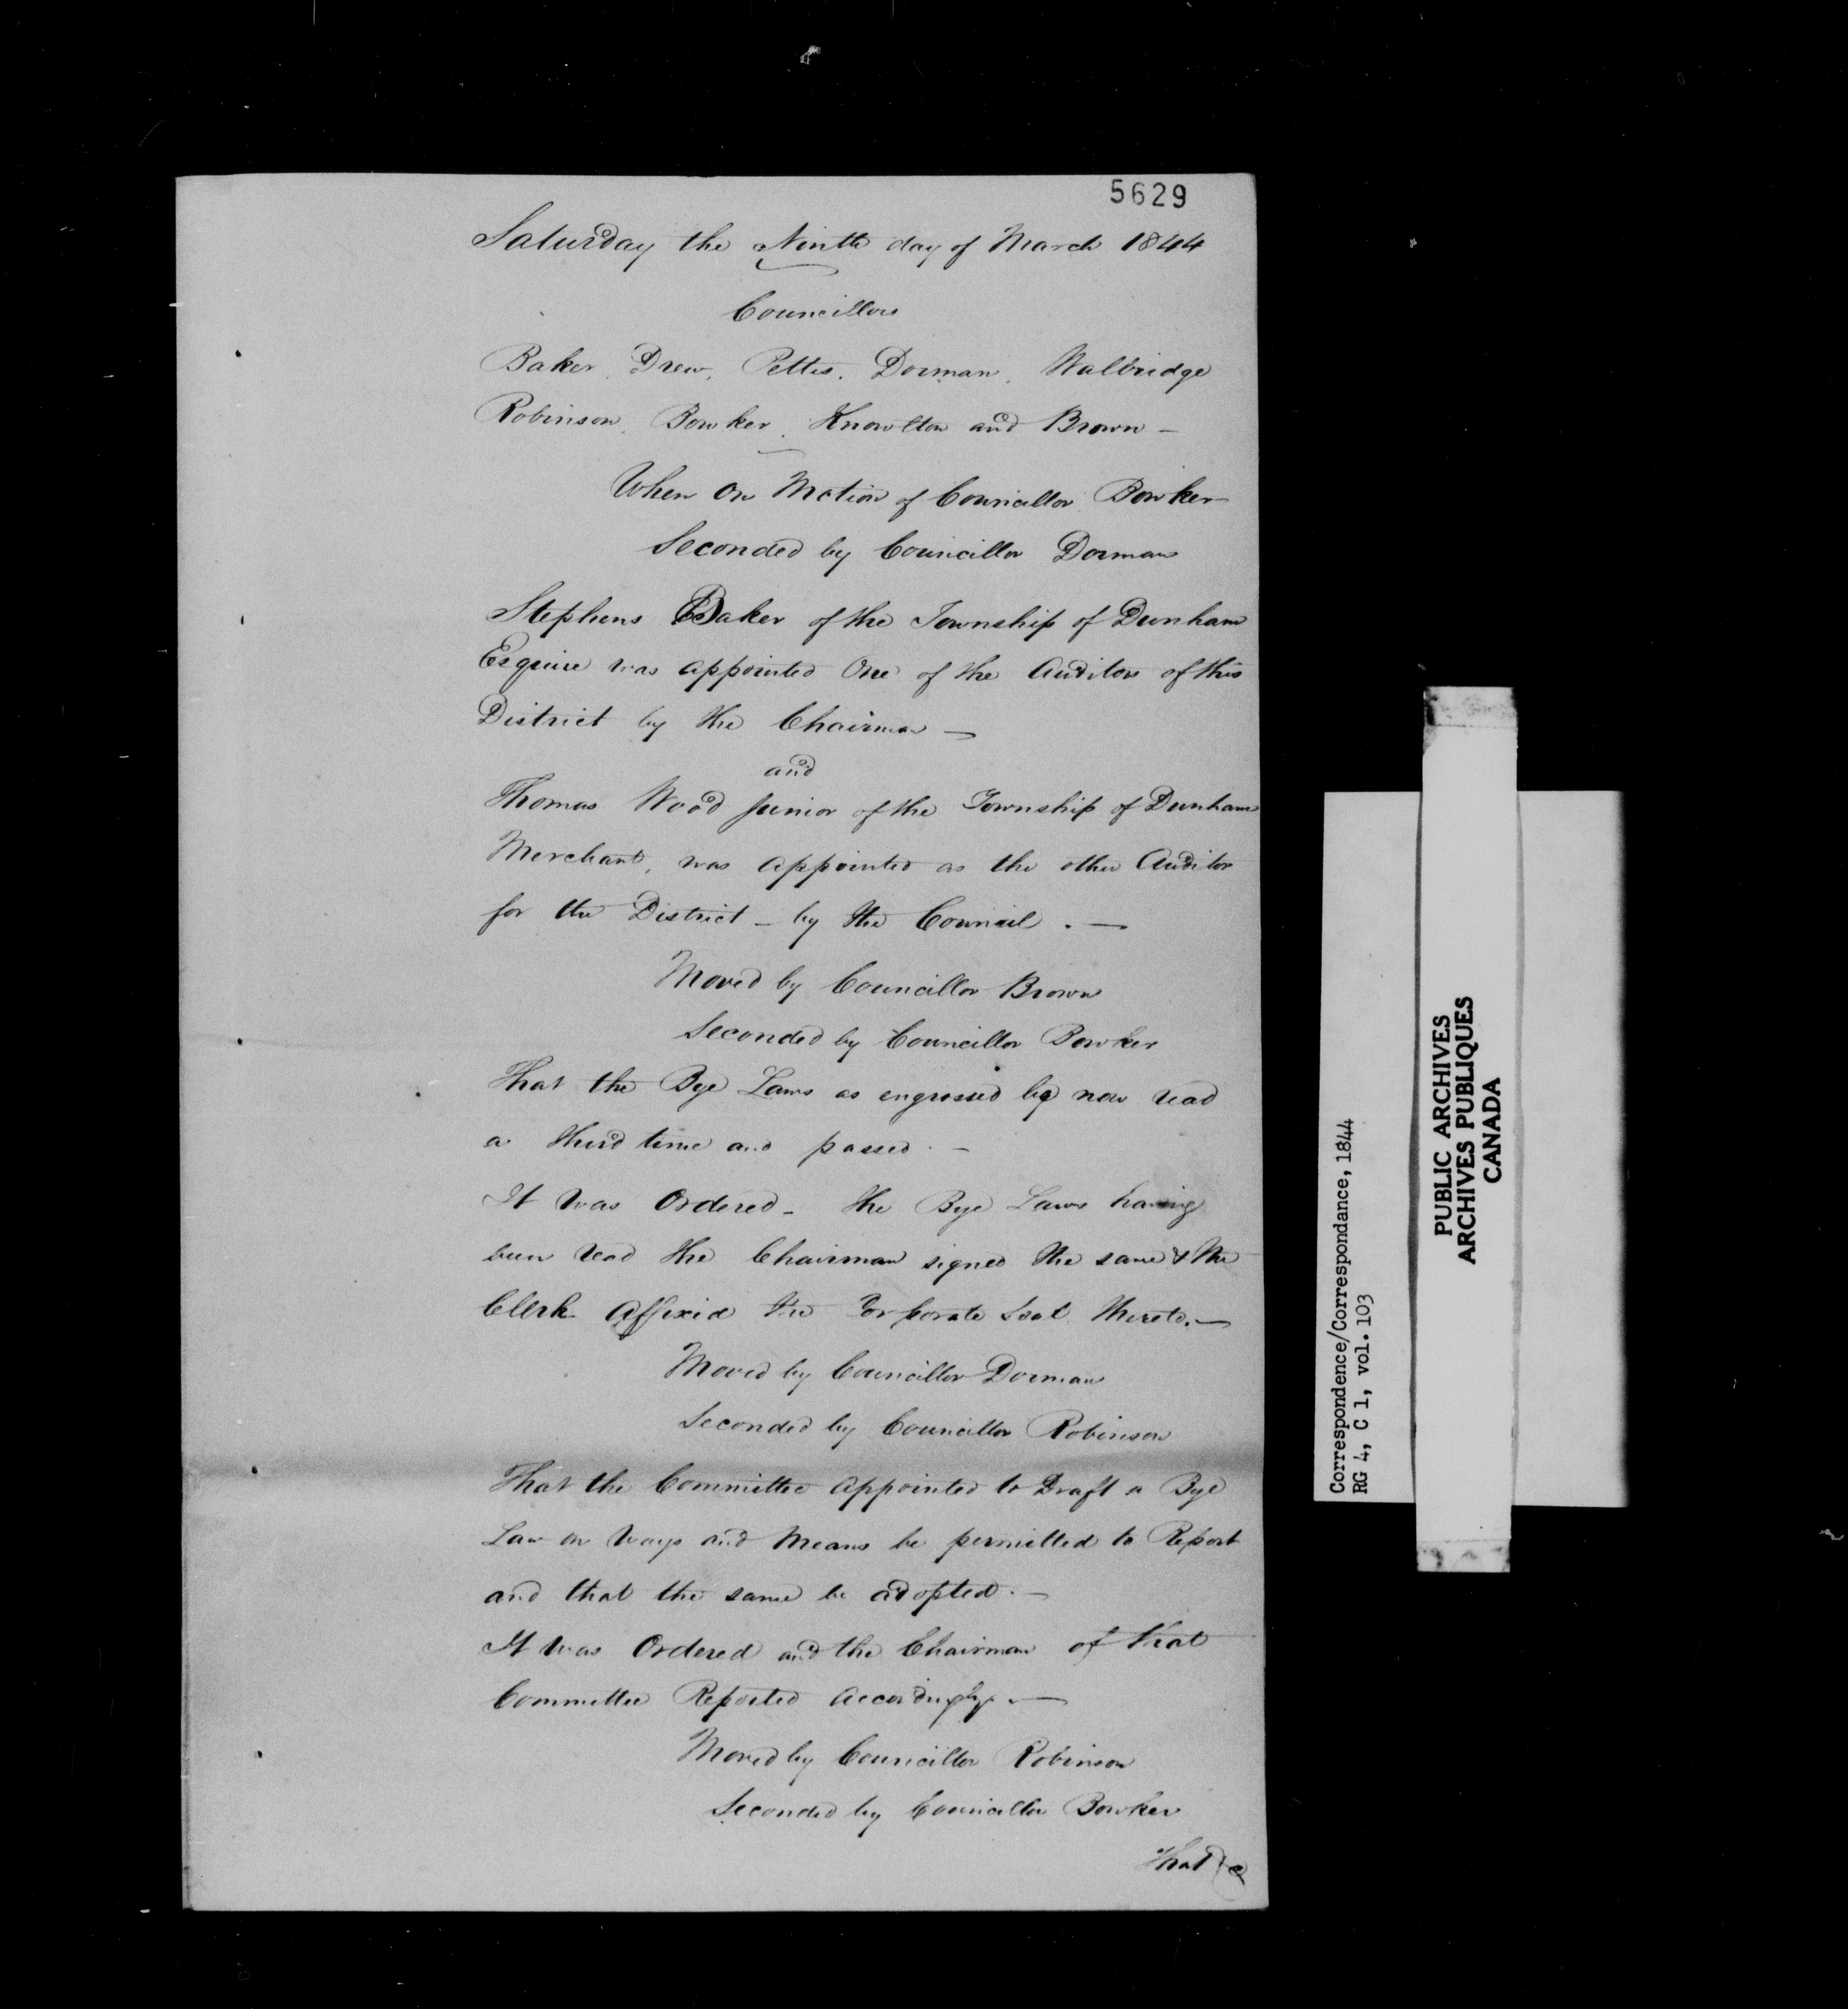 5629
Saturday the Ninth day of March 1844
Councillors
Baker, Drew, Pettes, Dorman, Walbridge
Robinson, Bowker, Knowlton and Brown —
When On Motion of Councillor Bowker
Seconded by Councillor Dorman
Stephens Baker of the Township of Dunham
Esquire was appointed One of the Auditors of this
District by the Chairman —
and
Thomas Wood Junior of the Township of Dunham
Merchant, was appointed as the other Auditor
for the District — by the Council . —
Moved by Councillor Brown
Seconded by Councillor Bowker
That the Bye Laws as engrossed be now read
a third time and passed. —
It was Ordered — the Bye Laws having
been read the Chairman signed the same & the
Clerk Affixed the Corporate Seal thereto. —
Moved by Councillor Dorman
Seconded by Councillor Robinson
That the Committee appointed to Draft a Bye
Law on ways and Means be permitted to Report
and that the same be adopted. —
It was Ordered and the Chairman of that
Committee Reported accordingly. —
Moved by Councillor Robinson
Seconded by Councillor Bowker
That
Correspondence/Correspondance, 1844
RG 4, C 1, vol. 103
PUBLIC ARCHIVES
ARCHIVES PUBLIQUES
CANADA